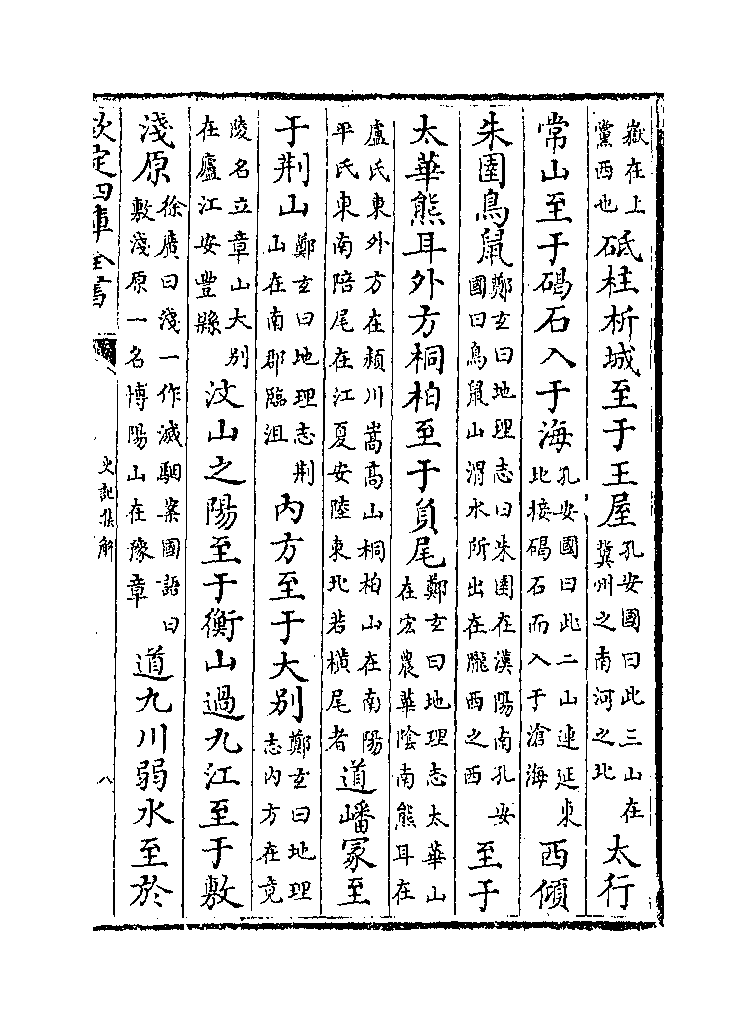 嶽在上黨西也砥柱析城至于王屋孔安國曰此三山在冀州之南河之北太行
常山至于碣石入于海孔安國曰此二山連延東北接碣石而入于滄海西傾
朱圉鳥鼠鄭玄曰地理志曰朱圉在漢陽南孔安國曰鳥鼠山渭水所出在隴西之西至于
太華熊耳外方桐柏至于負尾鄭玄曰地理志太華山在宏農華陰南熊耳在
盧氏東外方在潁川嵩高山桐柏山在南陽平氏東南陪尾在江夏安陸東北若橫尾者道嶓冢至
于荆山鄭玄曰地理志荆山在南郡臨沮內方至于大別鄭玄曰地理志內方在竟
陵名立章山大別在廬江安豐縣汶山之陽至于衡山過九江至于敷
淺原徐廣曰淺一作滅駰案國語曰敷淺原一名博陽山在豫章道九川弱水至於
欽定四庫全書
史記集解
八